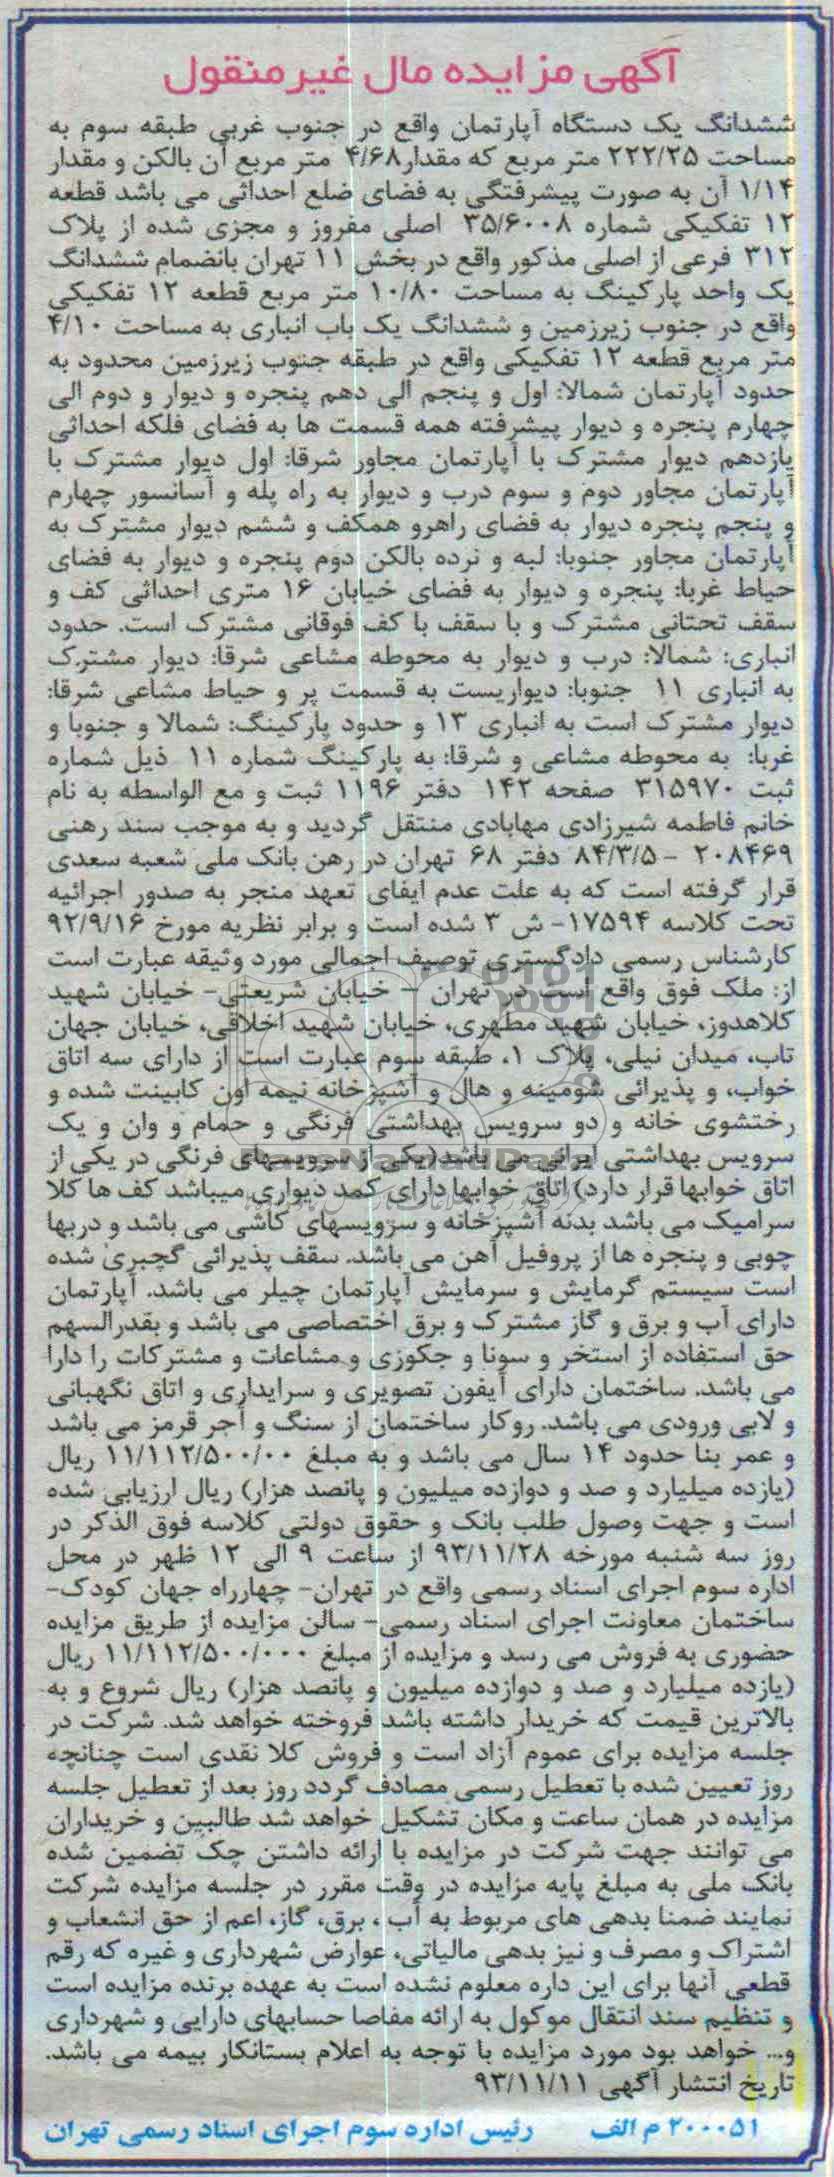 آگهی مزایده مال غیرمنقول
ششدانگ یک دستگاه آپارتمان واقع در جنوب غربی طبقه سوم به
مساحت ۲۲۲/۲۵ متر مربع که مقدار۴/۶۸ متر مربع آن بالکن و مقدار
۱/۱۴ آن به صورت پیشرفتگی به فضای ضلع احداثی می باشد قطعه
۱۲ تفکیکی شماره ۳۵/۶۰۰۸ اصلی مفروز و مجزی شده از پلاک
۳۱۲ فرعی از اصلی مذکور واقع در بخش ۱۱ تهران بانضمام ششدانگ
یک واحد پارکینگ به مساحت ۱۰/۸۰ متر مربع قطعه ۱۲ تفکیکی
واقع در جنوب زیرزمین و ششدانگ یک باب انباری به مساحت ۴/۱۰
متر مربع قطعه ۱۲ تفکیکی واقع در طبقه جنوب زیرزمین محدود به
حدود آپارتمان شمالا: اول و پنجم الی دهم پنجره و دیوار و دوم الی
چهارم پنجره و دیوار پیشرفته همه قسمت ها به فضای فلکه احداثی
یازدهم دیوار مشترک با آپارتمان مجاور شرقا: اول دیوار مشترک با
آپارتمان مجاور دوم و سوم درب و دیوار به راه پله و آسانسور چهارم
و پنجم پنجره دیوار به فضای راهرو همکف و ششم دیوار مشترک به
آپارتمان مجاور جنوبا: لبه و نرده بالکن دوم پنجره و دیوار به فضای
حیاط غربا: پنجره و دیوار به فضای خیابان ۱۶ متری احداثی کف و
سقف تحتانی مشترک و با سقف با کف فوقانی مشترک است. حدود
انباری: شمالا: درب و دیوار به محوطه مشاعی شرقا: دیوار مشترک
به انباری ۱۱ جنوبا: دیواریست به قسمت پر و حیاط مشاعی شرقا:
دیوار مشترک است به انباری ۱۳ و حدود پارکینگ: شمالا و جنوبا و
غربا: به محوطه مشاعی و شرقا: به پارکینگ شماره ۱۱ ذیل شماره
ثبت ۳۱۵۹۷۰ صفحه ۱۴۲ دفتر ۱۱۹۶ ثبت و مع الواسطه به نام
خانم فاطمه شیرزادی مهابادی منتقل گردید و به موجب سند رهنی
۲۰۸۴۶۹ - ۸۴/۳/۵ دفتر ۶۸ تهران در رهن بانک ملی شعبه سعدی
قرار گرفته است که به علت عدم ایفای تعهد منجر به صدور اجرائیه
تحت کلاسه ۱۷۵۹۴- ش ۳ شده است و برابر نظریه مورخ ۹۲/۹/۱۶
کارشناس رسمی دادگستری توصیف اجمالی مورد وثیقه عبارت است
از: ملک فوق واقع است در تهران - خیابان شریعتی- خیابان شهید
کلاهدوز، خیابان شهید مطهری، خیابان شهید اخلاقی، خیابان جهان
تاب، میدان نیلی، پلاک ۱، طبقه سوم عبارت است از دارای سه اتاق
خواب، و پذیرائی شومینه و هال و آشپزخانه نیمه اون کابینت شده و
رختشوی خانه و دو سرویس بهداشتی فرنگی و حمام و وان و یک
سرویس بهداشتی ایرانی می باشد(یکی از سرویسهای فرنگی در یکی از
اتاق خوابها قرار دارد) اتاق خوابها دارای کمد دیواری میباشد کف ها کلا
سرامیک می باشد بدنه آشپزخانه و سرویسهای کاشی می باشد و دربها
چوبی و پنجره ها از پروفیل آهن می باشد. سقف پذیرائی گچبری شده
است سیستم گرمایش و سرمایش آپارتمان چیلر می باشد. آپارتمان
دارای آب و برق و گاز مشترک و برق اختصاصی می باشد و بقدرالسهم
حق استفاده از استخر و سونا و جکوزی و مشاعات و مشترکات را دارا
می باشد. ساختمان دارای آیفون تصویری و سرایداری و اتاق نگهبانی
و لابی ورودی می باشد. روکار ساختمان از سنگ و آجر قرمز می باشد
و عمر بنا حدود ۱۴ سال می باشد و به مبلغ ۱۱/۱۱۲/۵۰۰/۰۰ ریال
(یازده میلیارد و صد و دوازده میلیون و پانصد هزار) ریال ارزیابی شده
است و جهت وصول طلب بانک و حقوق دولتی کلاسه فوق الذکر در
روز سه شنبه مورخه ۹۳/۱۱/۲۸ از ساعت ۹ الی ۱۲ ظهر در محل
اداره سوم اجرای اسناد رسمی واقع در تهران- چهارراه جهان کودک-
ساختمان معاونت اجرای اسناد رسمی- سالن مزایده از طریق مزایده
حضوری به فروش می رسد و مزایده از مبلغ ۱۱/۱۱۲/۵۰۰/۰۰۰ ریال
(یازده میلیارد و صد و دوازده میلیون و پانصد هزار) ریال شروع و به
بالاترین قیمت که خریدار داشته باشد فروخته خواهد شد. شرکت در
جلسه مزایده برای عموم آزاد است و فروش کلا نقدی است چنانچه
روز تعیین شده با تعطیل رسمی مصادف گردد روز بعد از تعطیل جلسه
مزایده در همان ساعت و مکان تشکیل خواهد شد طالبین و خریداران
می توانند جهت شرکت در مزایده با ارائه داشتن چک تضمین شده
بانک ملی به مبلغ پایه مزایده در وقت مقرر در جلسه مزایده شرکت
نمایند ضمنا بدهی های مربوط به آب ، برق، گاز، اعم از حق انشعاب و
اشتراک و مصرف و نیز بدهی مالیاتی، عوارض شهرداری و غیره که رقم
قطعی آنها برای این داره معلوم نشده است به عهده برنده مزایده است
و تنظیم سند انتقال موکول به ارائه مفاصا حسابهای دارایی و شهرداری
و... خواهد بود مورد مزایده با توجه به اعلام بستانکار بیمه می باشد.
تاریخ انتشار آگهی ۹۳/۱۱/۱۱
۲۰۰۰۵۱ م الف رئیس اداره سوم اجرای اسناد رسمی تهران
ParsNamadData